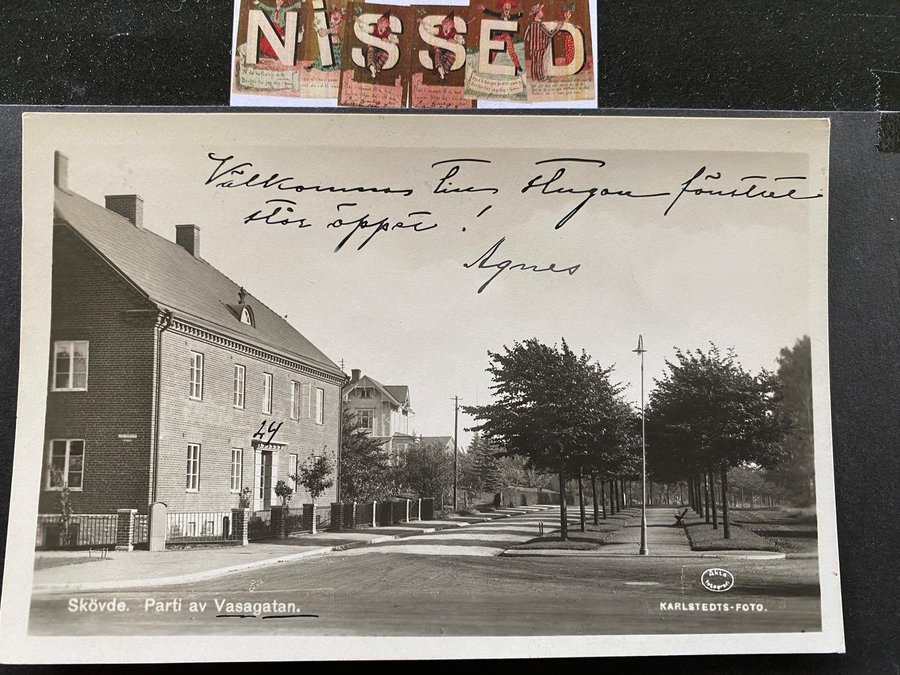 NISSED
Välkomna till stugan fönstret
står öppet!
Agnes
24
Skövde. Parti av Vasagatan.
Äkta
fotografi
KARLSTEDTS-FOTO.